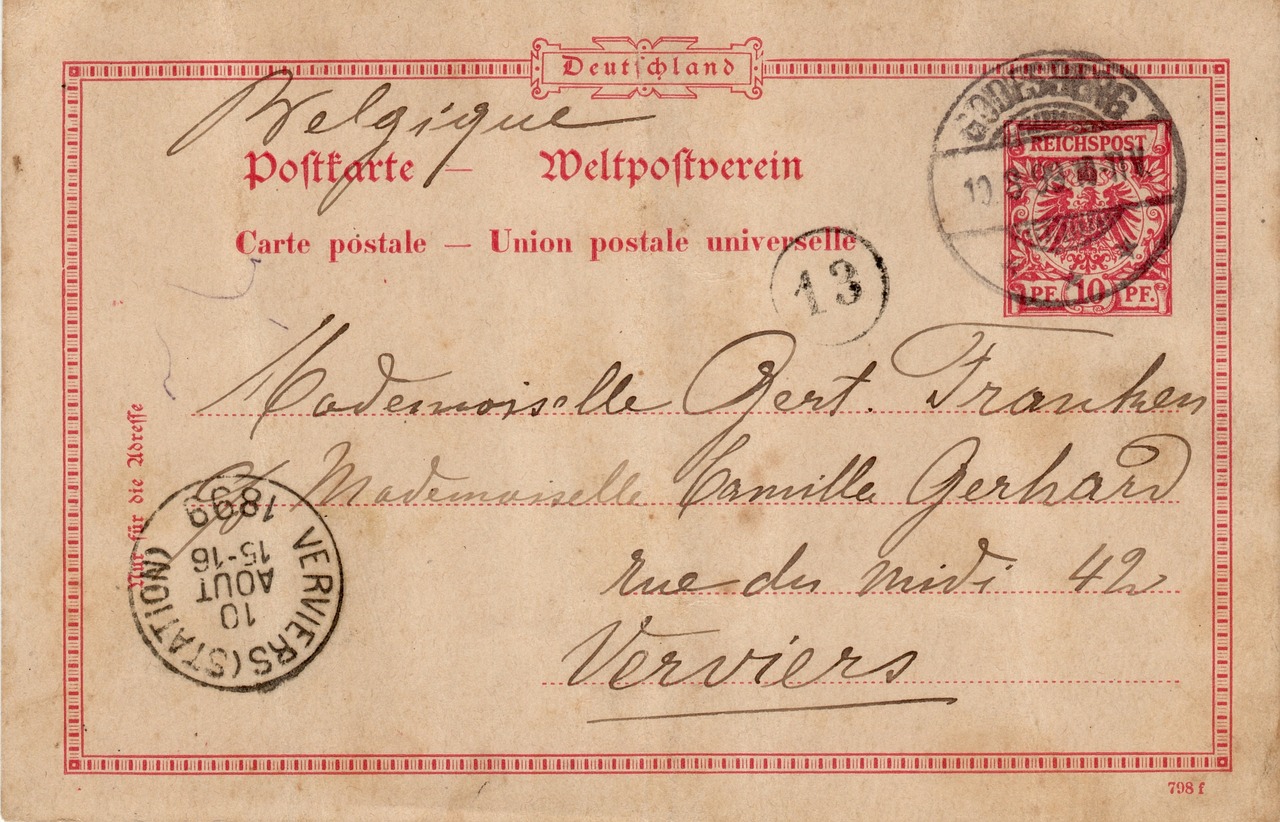 Deutschland
Belgique
Postkarte — Weltpostverein
Carte postale — Union postale universelle
GODESBERG
10. 8. 99. 10-11 V.
REICHSPOST
PF. 10 PF.
13
Mademoiselle Gert. Franken
c/o Mademoiselle Camille Gerhard
rue du midi 42
Verviers
Nur für die Adresse
VERVIERS (STATION)
10
AOUT
15-16
1899
798 f